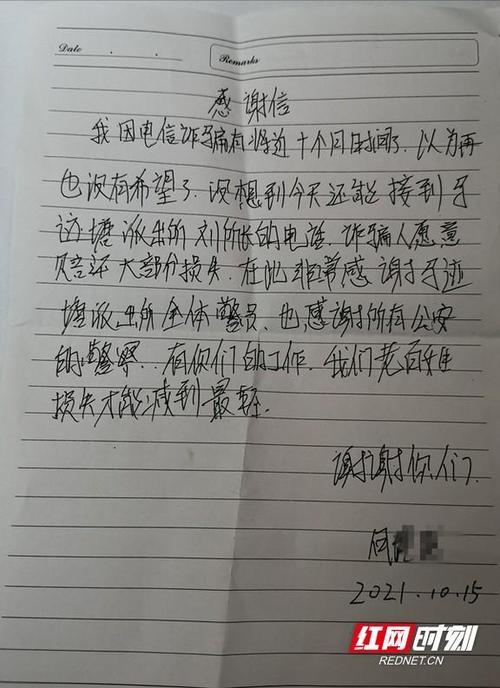 Date . .
Remarks
感谢信
我因电信诈骗有将近十个月时间了，以为再
也没有希望了，没想到今天还能接到牙
迹塘派出所刘所长的电话，诈骗人愿意
赔还大部分损失，在此非常感谢牙迹
塘派出所全体警员，也感谢所有公安
的警察．有你们的工作，我们老百姓
损失才能减到最轻。
谢谢你们
何
2021.10.15
红网时刻
REDNET.CN